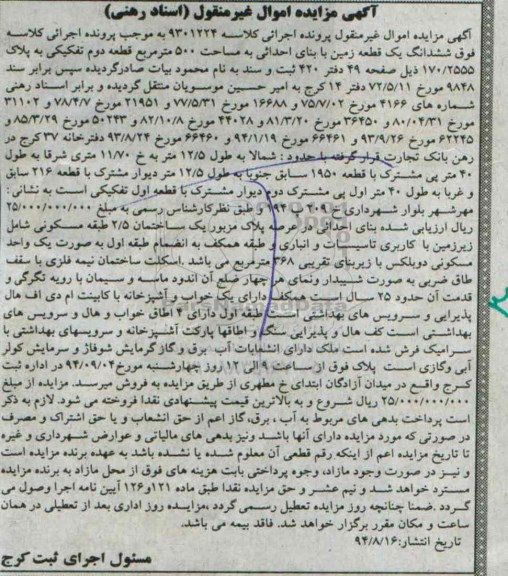 آگهی مزایده اموال غیرمنقول (اسناد رهنی)
آگهی مزایده اموال غیرمنقول پرونده اجرائی کلاسه ۹۳۰۱۲۲۴ به موجب پرونده اجرائی کلاسه
فوق ششدانگ یک قطعه زمین با بنای احداثی به مساحت ۵۰۰ مترمربع قطعه دوم تفکیکی به پلاک
۱۷۰/۲۵۵۵ ذیل صفحه ۴۹ دفتر ۴۲۰ ثبت و سند به نام محمود بیات صادرگردیده سپس برابر سند
۹۸۴۸ مورخ ۷۲/۵/۱۱ دفتر ۱۴ کرج به امیر حسین موسویان منتقل گردیده و برابر اسناد رهنی
شماره های ۴۱۶۶ مورخ ۷۵/۷/۰۲ و ۱۶۶۸۸ مورخ ۷۷/۵/۳۱ و ۲۱۹۵۱ مورخ ۷۸/۴/۷ و ۳۱۱۰۲
مورخ ۸۰/۰۴/۳۱ و ۳۶۴۵۰ مورخ ۸۱/۳/۲۰ و ۴۴۰۲۸ مورخ ۸۲/۱۰/۸ و ۵۰۲۴۳ مورخ ۸۵/۳/۲۹ و
۶۲۲۴۵ مورخ ۹۳/۹/۲۶ و ۶۶۴۶۱ مورخ ۹۴/۱/۱۹ و ۶۶۴۶۰ مورخ ۹۳/۸/۲۴ دفترخانه ۳۷ کرج در
رهن بانک تجارت قرار گرفته با حدود : شمالا به طول ۱۲/۵ متر به خ ۱۱/۷۰ متری شرقا به طول
۴۰ متر پی مشترک با قطعه ۱۹۵۰ سابق جنوبا به طول ۱۲/۵ متر دیوار مشترک با قطعه ۲۱۶ سابق
و غربا به طول ۴۰ متر اول پی مشترک دوم دیوار مشترک با قطعه اول تفکیکی است به نشانی :
مهرشهر بلوار شهرداری خ و طبق نظرکارشناس رسمی به مبلغ ۲۵/۰۰۰/۰۰۰/۰۰۰
ریال ارزیابی شده بنای احداثی در عرصه پلاک مزبور یک ساختمان ۲/۵ طبقه مسکونی شامل
زیرزمین با کاربری تاسیسات و انباری و طبقه همکف به انضمام طبقه اول به صورت یک واحد
مسکونی دوبلکس با زیربنای تقریبی ۳۶۸ مترمربع می باشد .اسکلت ساختمان نیمه فلزی با سقف
طاق ضربی به صورت شیبدار ونمای هر چهار ضلع آن اندود ماسه و سیمان با رویه تگرگی و
قدمت آن حدود ۲۵ سال است همکف دارای یک خواب و آشپزخانه با کابینت ام دی اف هال
پذیرایی و سرویس های بهداشتی است طبقه اول دارای ۴ اطاق خواب و هال و سرویس های
بهداشتی است کف هال و پذیرایی سنگ و اطاقها پارکت آشپزخانه و سرویسهای بهداشتی با
سرامیک فرش شده است ملک دارای انشعابات آب برق و گاز گرمایش شوفاژ و سرمایش کولر
آبی وگازی است پلاک فوق از ساعت ۹ الی ۱۲ روز چهارشنبه مورخ ۹۴/۰۹/۰۴ در اداره ثبت
کرج واقع در میدان آزادگان ابتدای خ مطهری از طریق مزایده به فروش میرسد. مزایده از مبلغ
۲۵/۰۰۰/۰۰۰/۰۰۰ ریال شروع و به بالاترین قیمت پیشنهادی نقدا فروخته می شود. لازم به ذکر
است پرداخت بدهی های مربوط به آب ، برق، گاز اعم از حق انشعاب و یا حق اشتراک و مصرف
در صورتی که مورد مزایده دارای آنها باشد ونیز بدهی های مالیاتی و عوارض شهرداری و غیره
تا تاریخ مزایده اعم از اینکه رقم قطعی آن معلوم شده یا نشده باشد به عهده برنده مزایده است
و نیز در صورت وجود مازاد، وجوه پرداختی بابت هزینه های فوق از محل مازاد به برنده مزایده
مسترد خواهد شد و نیم عشر و حق مزایده نقدا طبق ماده ۱۲۱و۱۲۶ آیین نامه اجرا وصول می
گردد .ضمنا چنانچه روز مزایده تعطیل رسمی گردد ،مزایده روز اداری بعد از تعطیلی در همان
ساعت و مکان مقرر برگزار خواهد شد. فاقد بیمه می باشد.
تاریخ انتشار:۹۴/۸/۱۶
مسئول اجرای ثبت کرج